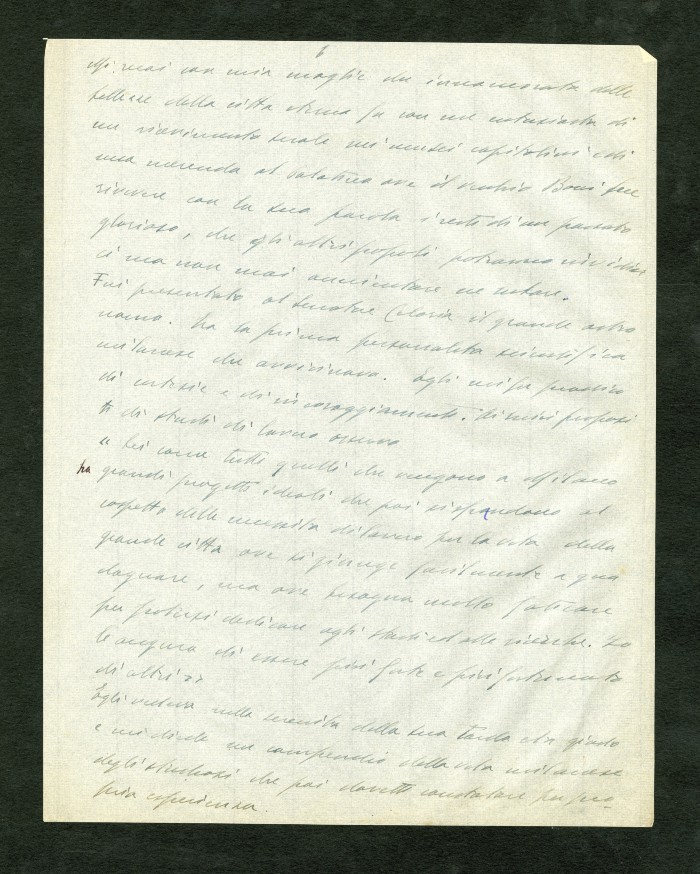 6
mi mai con mia moglie che innamorata delle
bellezze della città eterna fu con me entusiasta di
un ricevimento serale nei musei capitolini e di
una merenda al palatino ove il vecchio Boni fece
rivivere con la sua parola i resti di un passato
glorioso, che gli altri popoli potranno invidiar
ci ma non mai annientare ne
Fui presentato al senatore Celoria il grande astro
nomo. Fu la prima personalità scientifica
milanese che avvicinavo. Egli mi fu prodigo
di cortesie e di incoraggiamenti. di miei proposi
ti di studi di lavoro
« Lei come tutti quelli che vengono a Milano
ha grandi progetti ideali che poi si spandono al
cospetto delle necessità di lavoro per la vita della
grande città ove si giunge facilmente a gua
dagnare, ma ove bisogna molto faticare
per potersi dedicare agli studi ed alle ricerche. Lo
le auguro di essere più forte e più fortunato
di altri »
Egli vedeva nella serenità della sua tarda età giusto
e mi diede un compendio della vita milanese
degli studiosi che poi dovetti constatare per pro
pria esperienza.